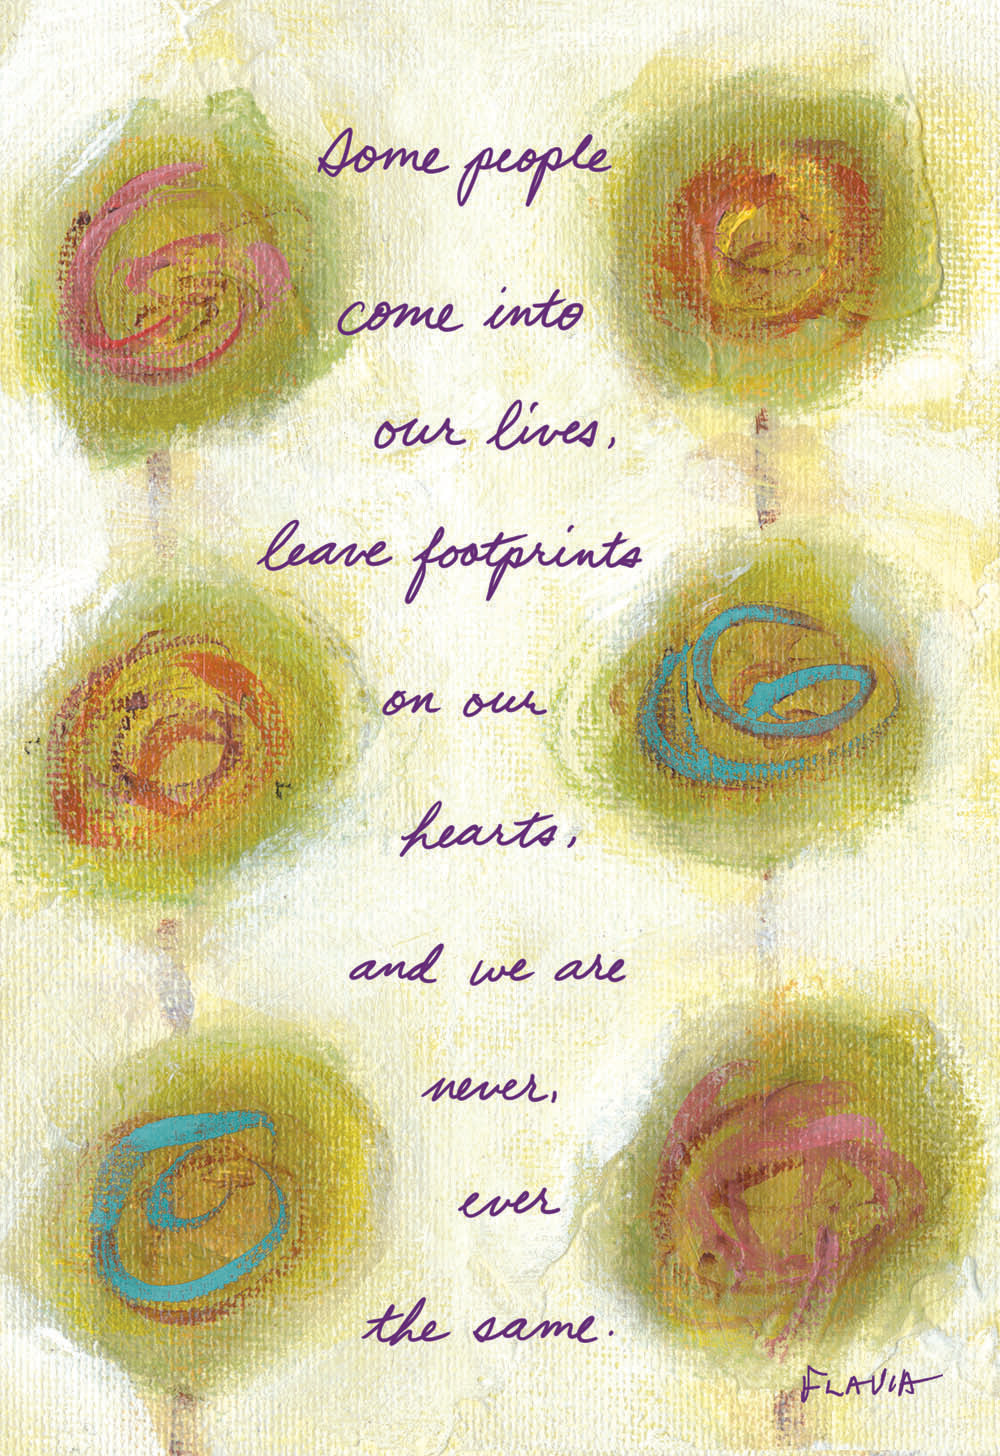 Some people
come into
our lives,
leave footprints
on our
hearts,
and we are
never,
ever
the same.
FLAVIA